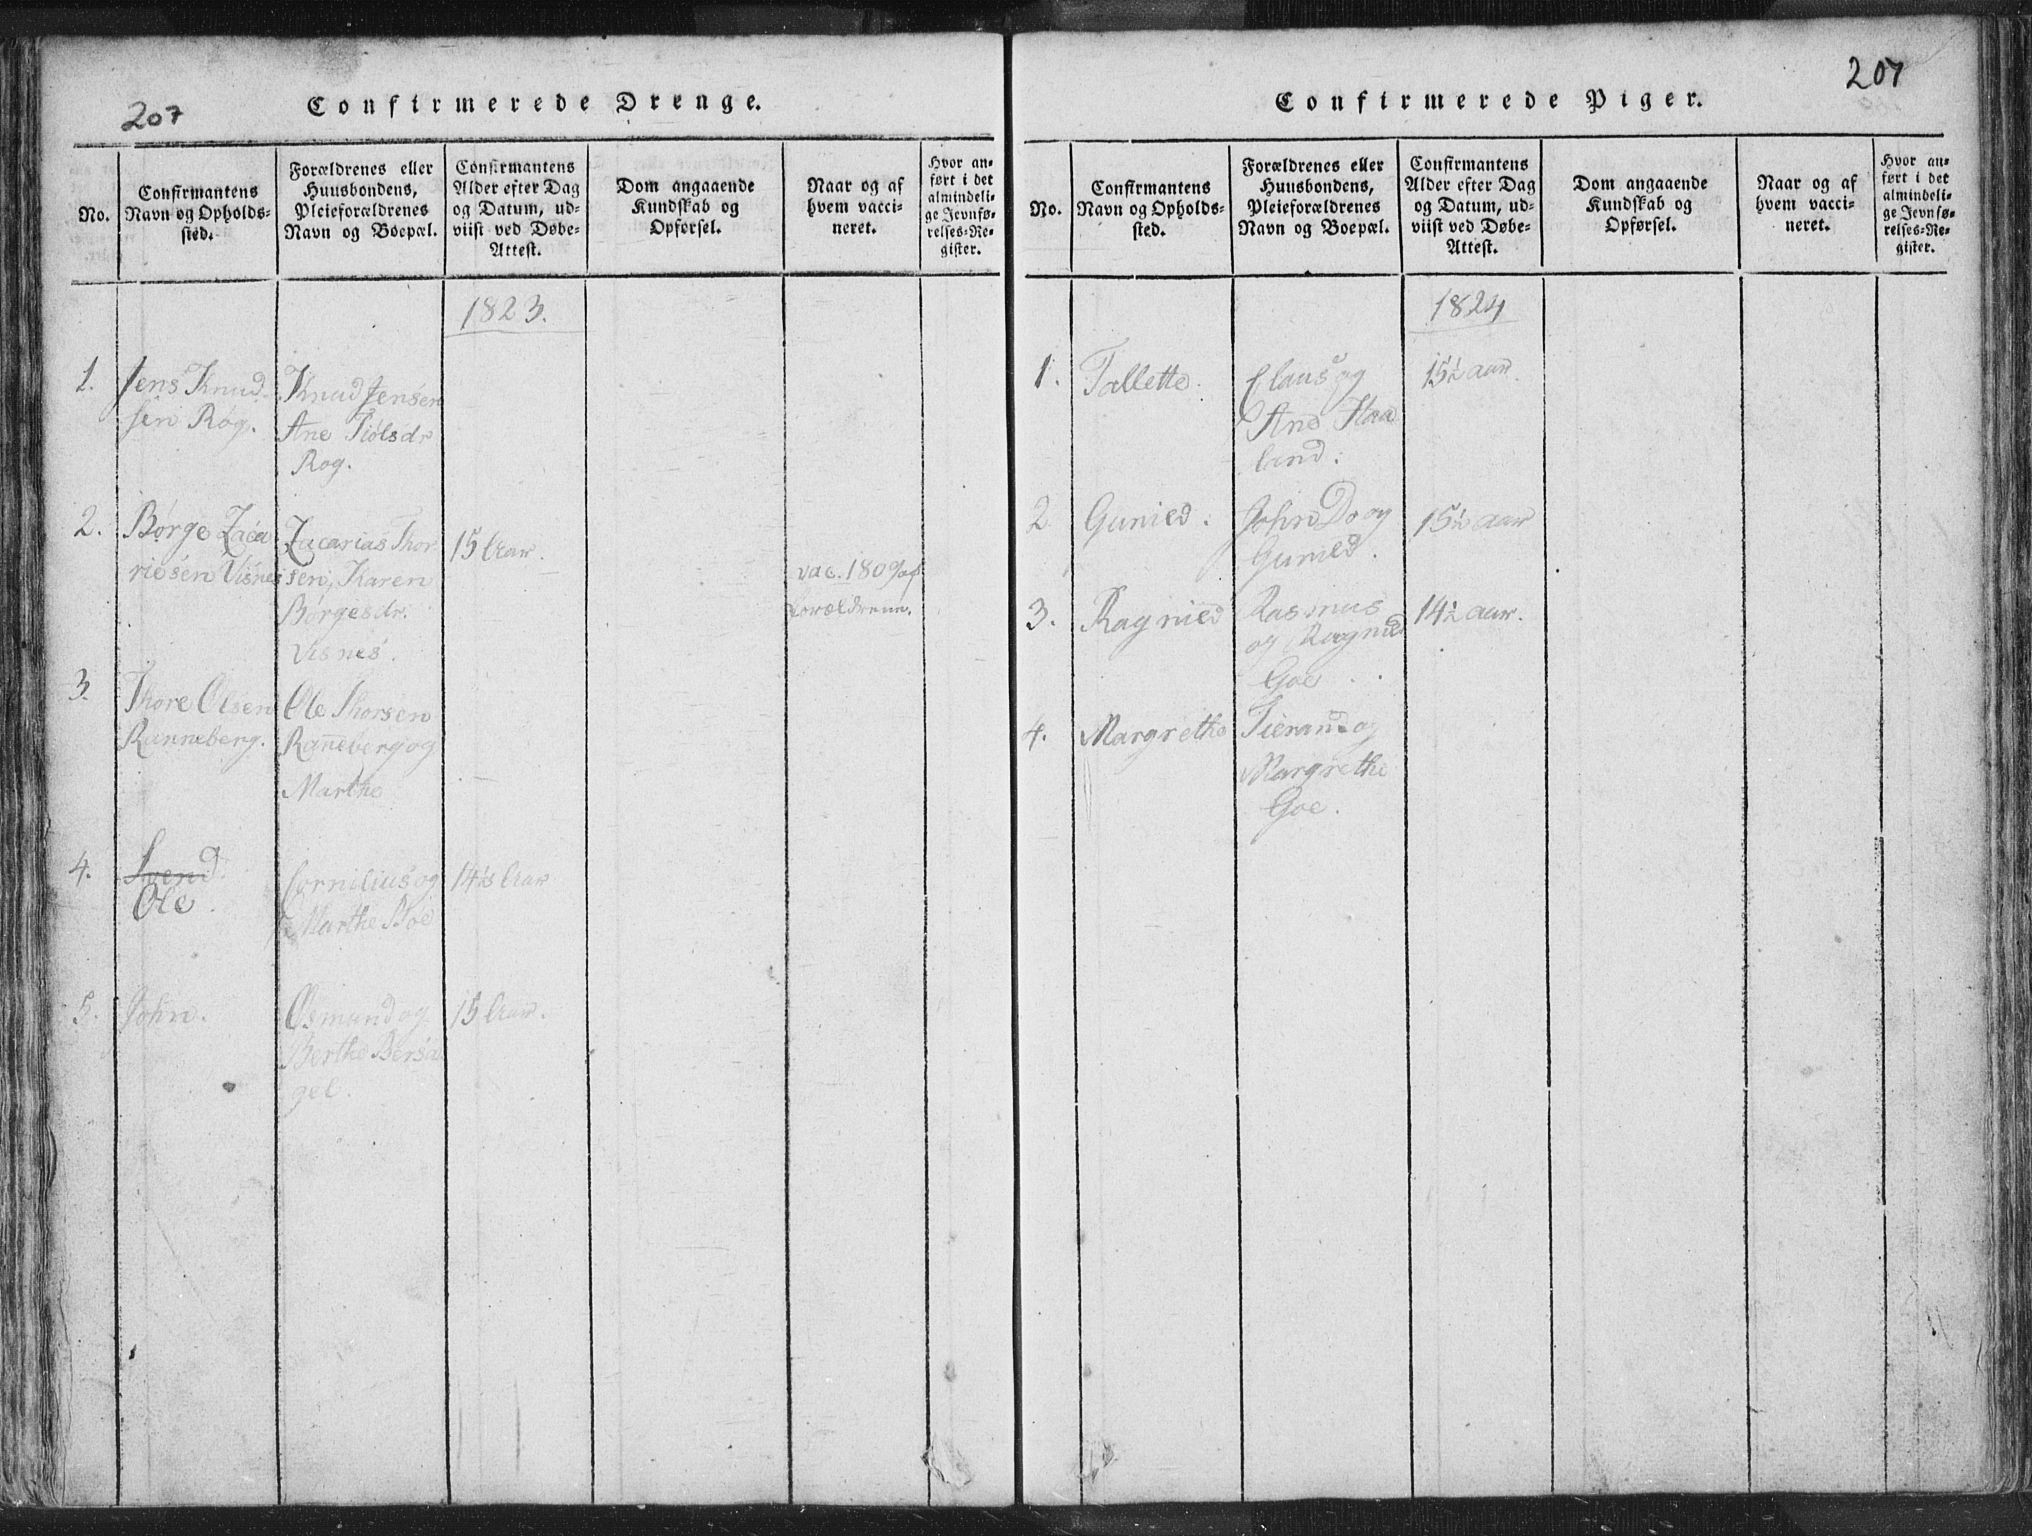 207
Confirmerede Drenge.
No.
Confirmantens
Navn og Opholds-
sted.
Forældrenes eller
Huusbondens,
Pleieforældrenes
Navn og Boepæl.
Confirmantens
Alder efter Dag
og Datum, ud-
viist ved Døbe-
Attest.
Dom angaaende
Kundskab og
Opførsel.
Naar og af
hvem vacci-
neret.
Hvor an-
ført i det
almindeli-
ge Jevnfø-
relses-Re-
gister.
1823.
1.
Jens Knud-
sen Røg.
Knud Jensen
Ane Tiølsdr
Røg.
2.
Børge Zaca
riesen Visnes
Zacarias Thor
sen, Karen
Børgesdr.
Visnes.
15 Aar.
vac. 1809 af
Forældrene.
3.
Thore Olsen
Ranneberg.
Ole Thorsen
Raneberg og
Marthe
4.
Svend
Ole.
Cornilius og
Marthe Boe
14½ Aar
5.
John.
Osmund og
Berthe Bersa
gel.
15 Aar.
207
Confirmerede Piger.
No.
Confirmantens
Navn og Opholds-
sted.
Forældrenes eller
Huusbondens,
Pleieforældrenes
Navn og Boepæl.
Confirmantens
Alder efter Dag
og Datum, ud-
viist ved Døbe-
Attest.
Dom angaaende
Kundskab og
Opførsel.
Naar og af
hvem vacci-
neret.
Hvor an-
ført i det
almindeli-
ge Jevnfø-
relses-Re-
gister.
1824
1.
Tallette.
Claus og
Ane Haa
land.
15½ aar.
2
Gunied.
John Do og
Gunild.
15½ aar
3.
Ragnied
Rasmus
og Ragnied
Goe
14½ aar.
4.
Margrethe
Tieran og
Margrethe
Goe.